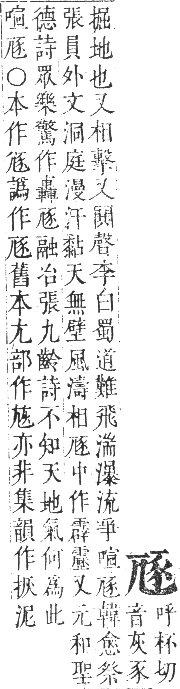 豗
呼杯切
音灰豕
掘地也又相擊又鬨聲李白蜀道難飛湍瀑流爭喧豗韓愈祭
張員外文洞庭漫汗黏天無壁風濤相豗中作霹靂又元和聖
德詩眾樂驚作轟豗融冶張九齡詩不知天地氣何爲此
喧豗○本作譌作豗舊本尢部作亦非集韻作泥